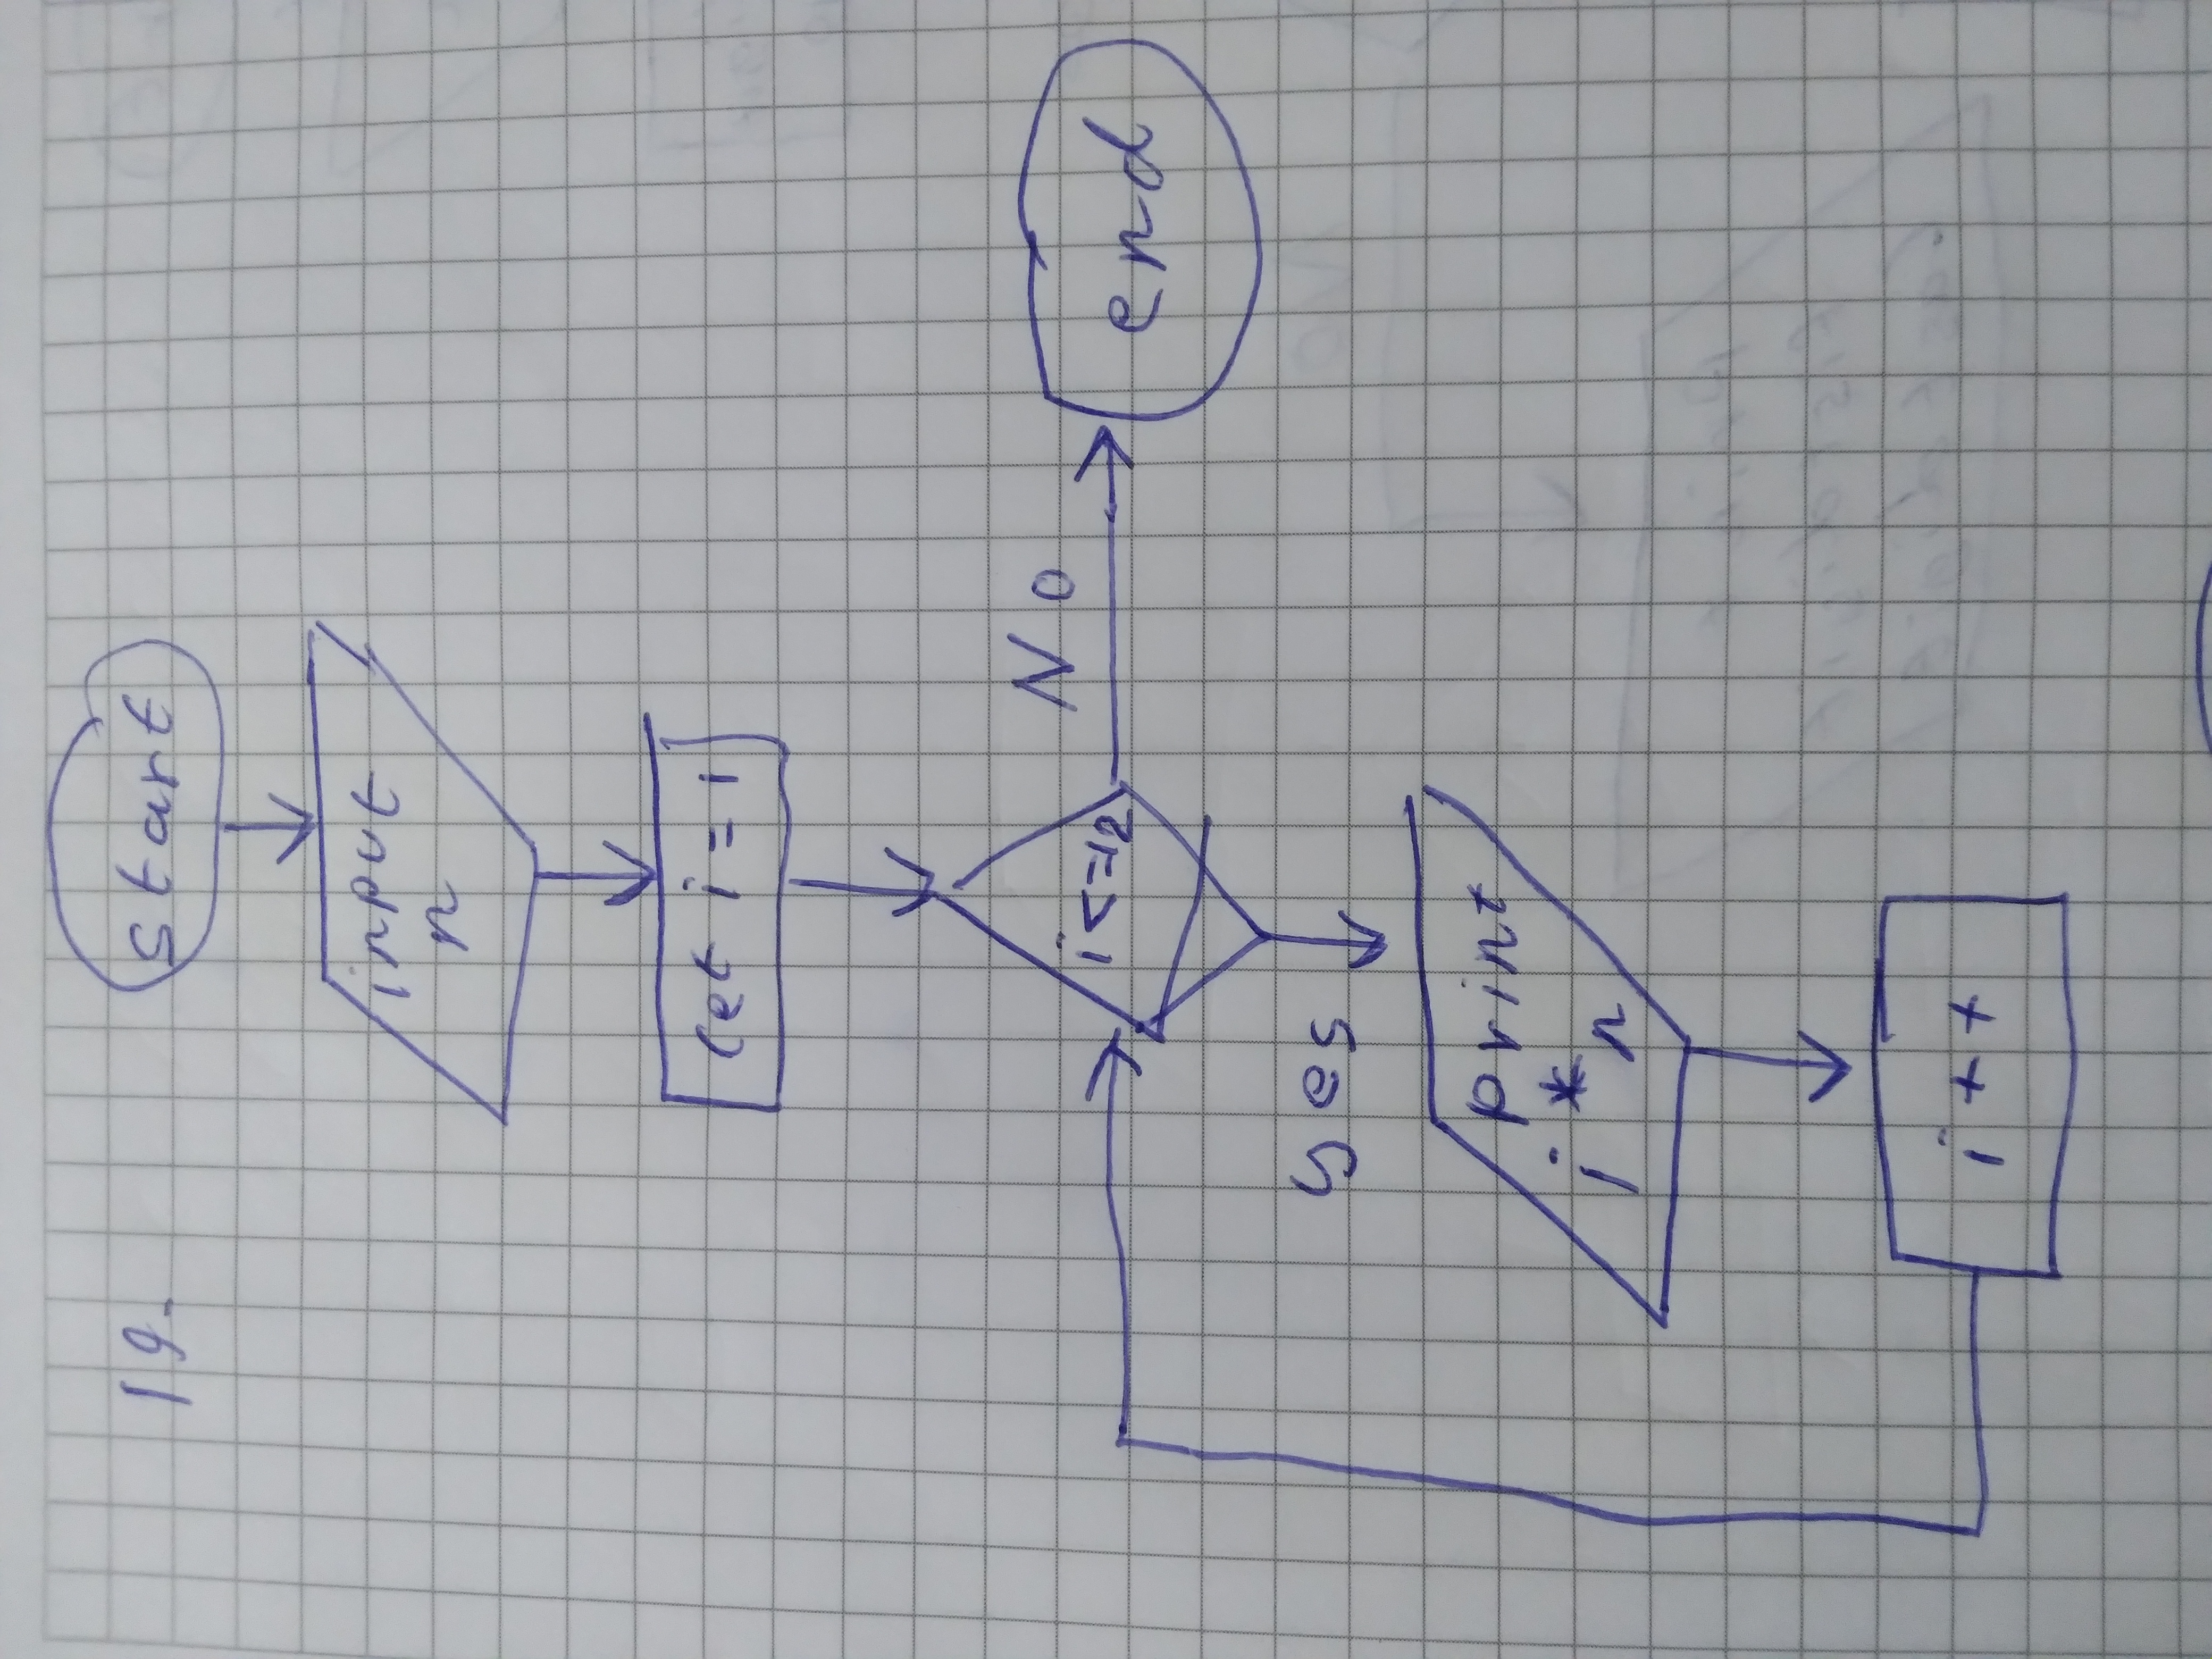 19.
start
input
n
let i = 1
i<=12
No
end
yes
print
i * n
i++